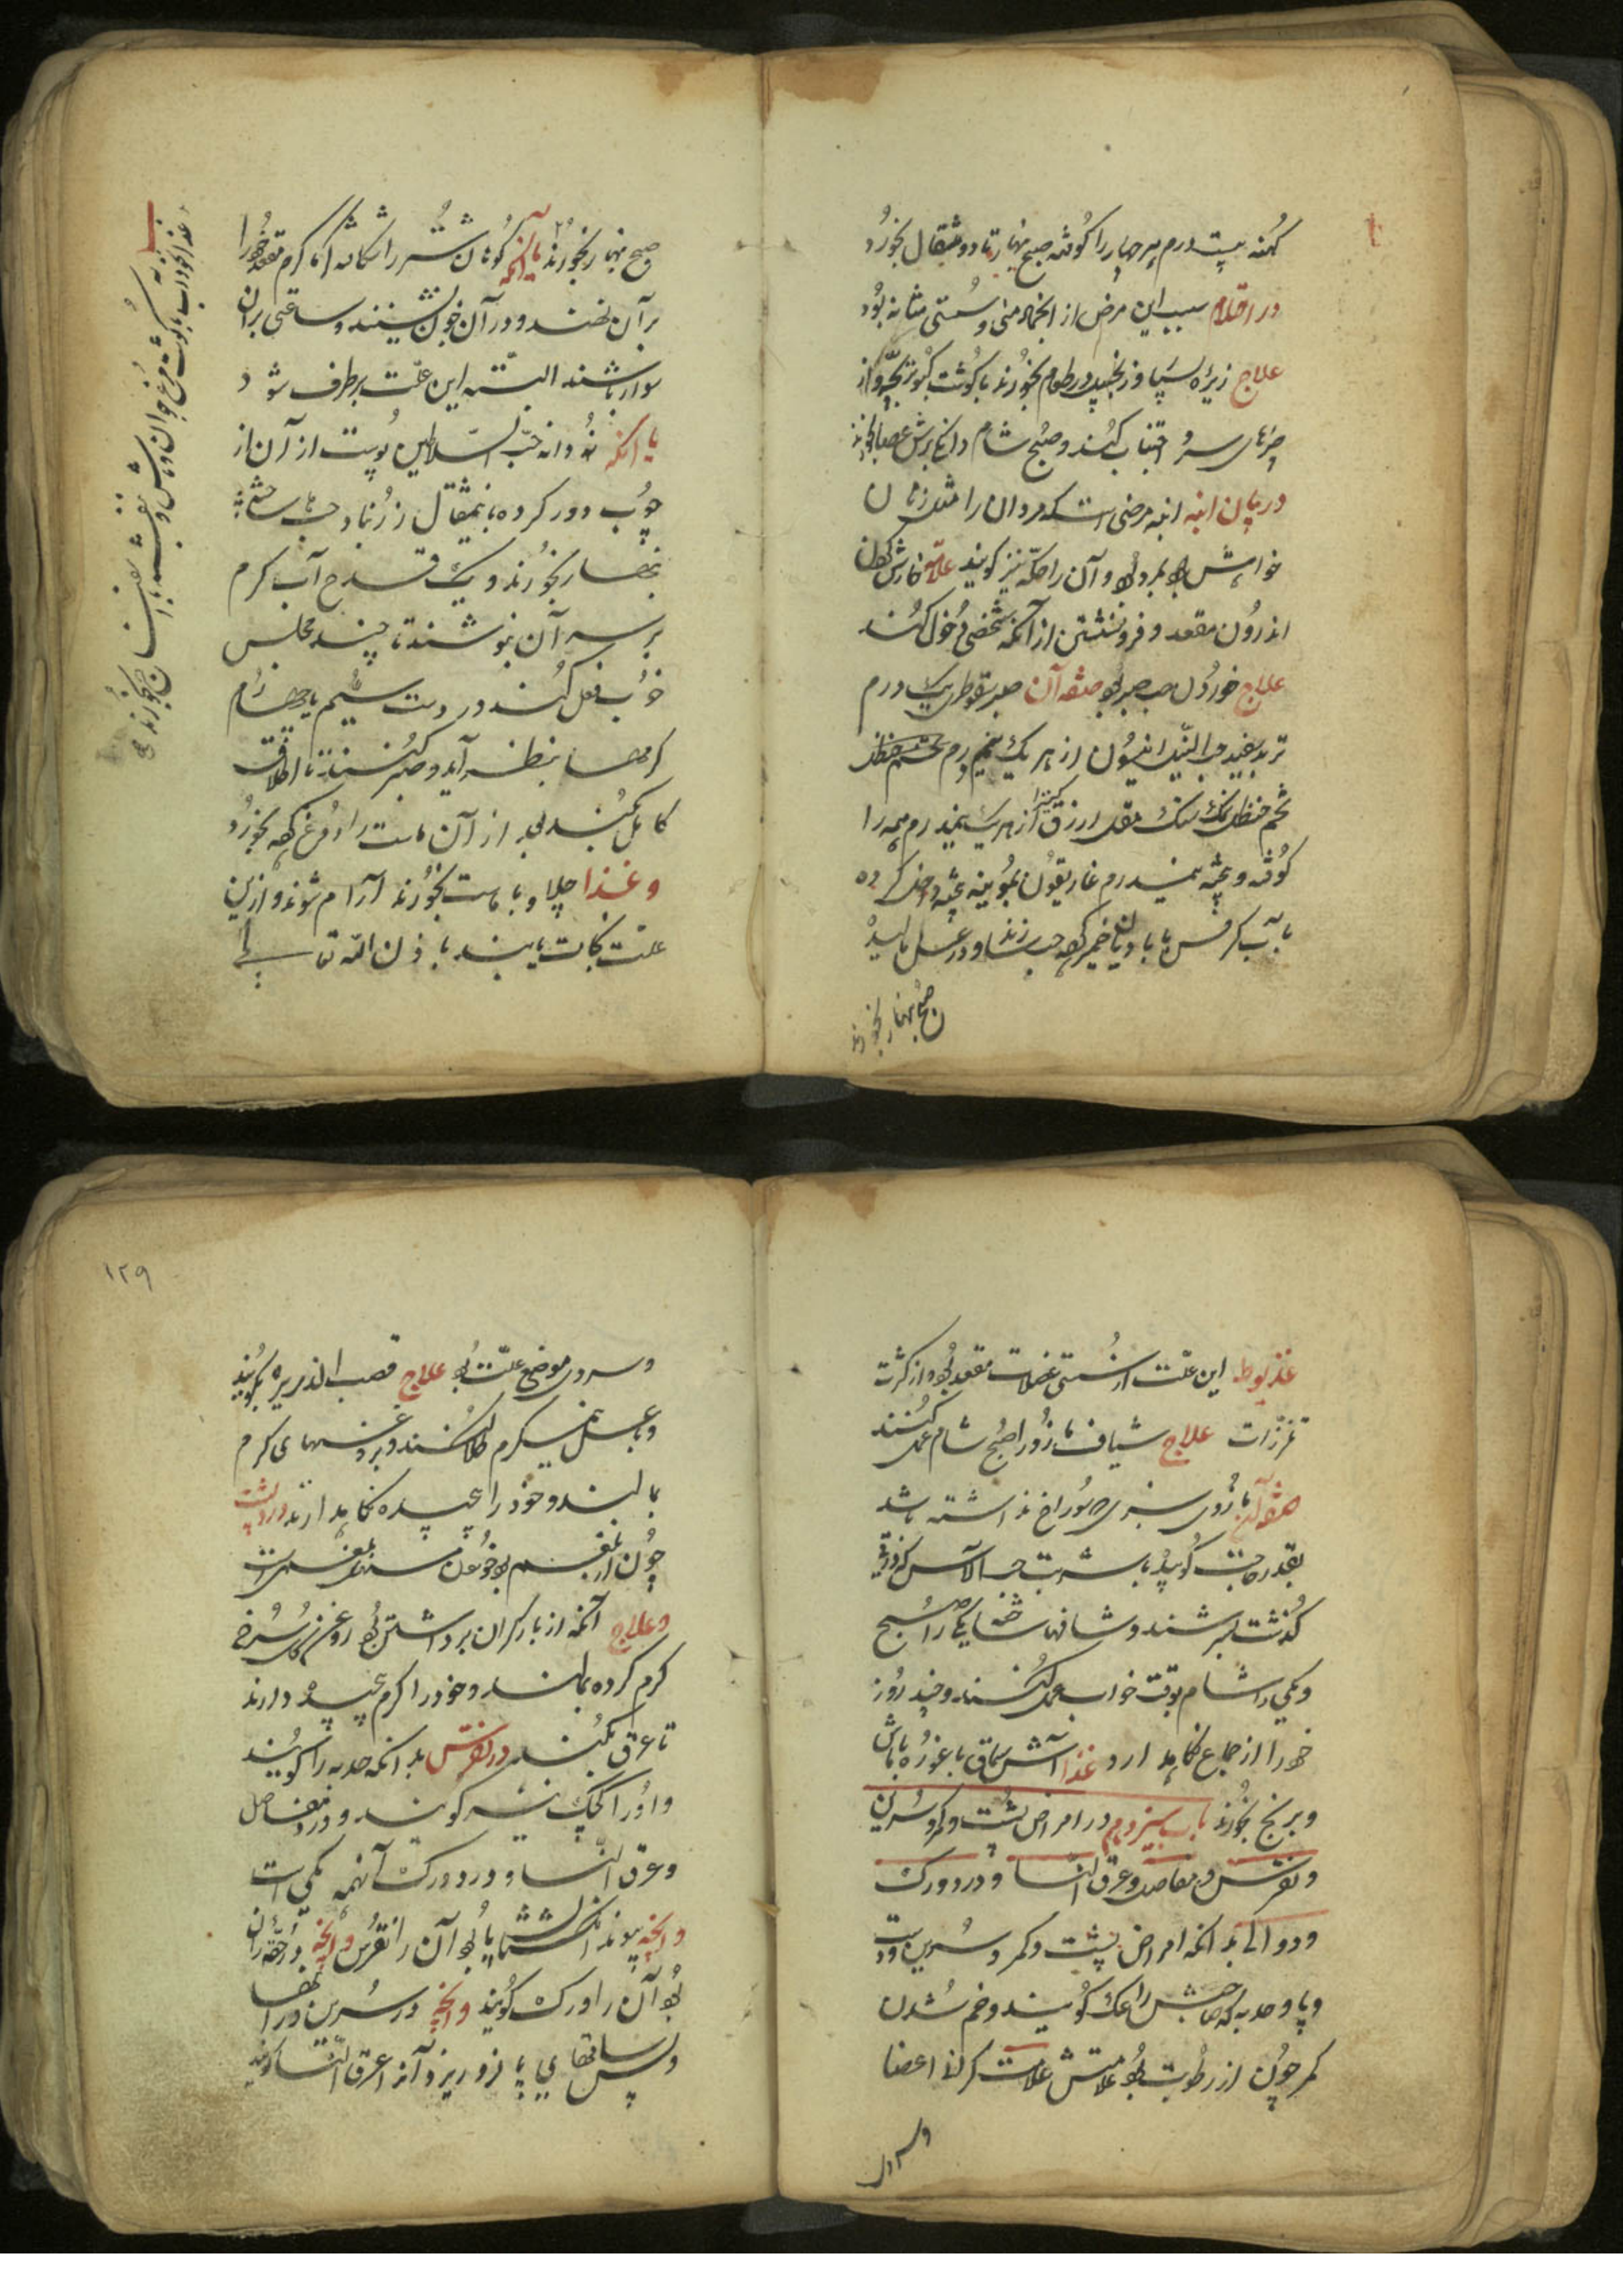 کهنه بیست درم هر چهار را کوفته صبح نهار تا دو مثقال بخورد
در احتلام سبب این مرض از انجماد منی و سستی مثانه بود
علاج زیره سیاه و زنجبیل در طعام بخورند با کوشت کبوتر بچه و از
چیزهای سرد اجتناب کنند و صبح شام
در بیان ابنه ابنه مرضی است که مردان را مثل زنان
خواهش بمردان بود و آن را حکه نیز کویند علامتش خارش کردن
اندرون مقعد و فرو نشستن از آنکه شخصی دخول کند
علاج خوردن حب صبر بود صفه آن صبر سقوطری یک درم
تربد سفید حب النیل انیسون از هر یک نیم درم
شحم حنظل نمک سنک مقل ازرق کتیرا از هر یک نیمدرم همه را
کوفته و بیخته نیمدرم غاریقون بموینه بیخته داخل کرده
با آب کرفس یا بادیان خمیر کرده حب سازند و در عسل مالیده
صبح نهار بخورند
صبح نهار بخورند یا آنکه کوهان شتر را شکافته کرماکرم مقعد خود را
بر آن نهند و در آن خون نشینند و ساعتی بر آن
سوار باشند البته این علت برطرف شود
یا آنکه نه دانه حب السلاطین پوست از آن از
چوب دور کرده با نیمثقال زرنباد حب ساخته
نهار بخورند و یک قدح آب کرم
بر سر آن بنوشند تا چند مجلس
خوب فعل کند در دست سیم یا چهارم
کرمها بنظر آید و صبر کنند تا اطلاق
کامل بکند بعد از آن ماست را دوغ کرده بخورد
و غذا چلاو با ماست بخورند آرام شوند و ازین
علت نجات یابند باذن الله تعالی
غذا نخوداب با کوشت مرغ جوان و ماش
۱۲۹
عذیوط این علت از سستی عضلات مقعد بود و از کثرت
علاج شیاف مازو را صبح شام عمل کنند
صفه آن مازوی سبزی که سوراخ نداشته باشد
بقدر حاجت کوبیده با شربت حب الآس که
کذشت بسرشند و شافها ساخته یکی را صبح
و یکی را شام بوقت خواب عمل کنند و چند روز
خود را از جماع نکاهدارد غذا آش سماق با غوره با ماش
و برنج بخورند باب سیزدهم در امراض پشت و کمر و سرین
و نقرس و مفاصل و عرق النسا و درد ورک
و دوالی بدانکه امراض پشت و کمر و سرین و دست
و پا و حدبه که صاحبش را کویند و خم شدن
کمر چون از رطوبت بود علامتش علامت کرانی اعضا
و سردی
و سردی موضع علت بود علاج قصب الذریره بکوبند
و با عسل نیمکرم طلا کنند و بروغنهای کرم
بمالند و خود را پیچیده نکاهدارند درد پشت
چون از بلغم بود
و علاج آنکه از بار کران برداشتن بود روغن کل سرخ
کرم کرده بمالند و خود را کرم پیچیده دارند
تا عرق بکند در نقرس بدانکه حدبه را کویند
و او را کجک نیز کویند و درد مفاصل
و عرق النسا و درد ورک آنهمه یکی است
و آنچه پیوند انکشتان پا بود آن را نقرس و آنچه در حقه ران
بود آن را ورک کویند و آنچه در سرین و رانها
و پس ساقهای پا فرو ریزد آنرا عرق النسا کویند